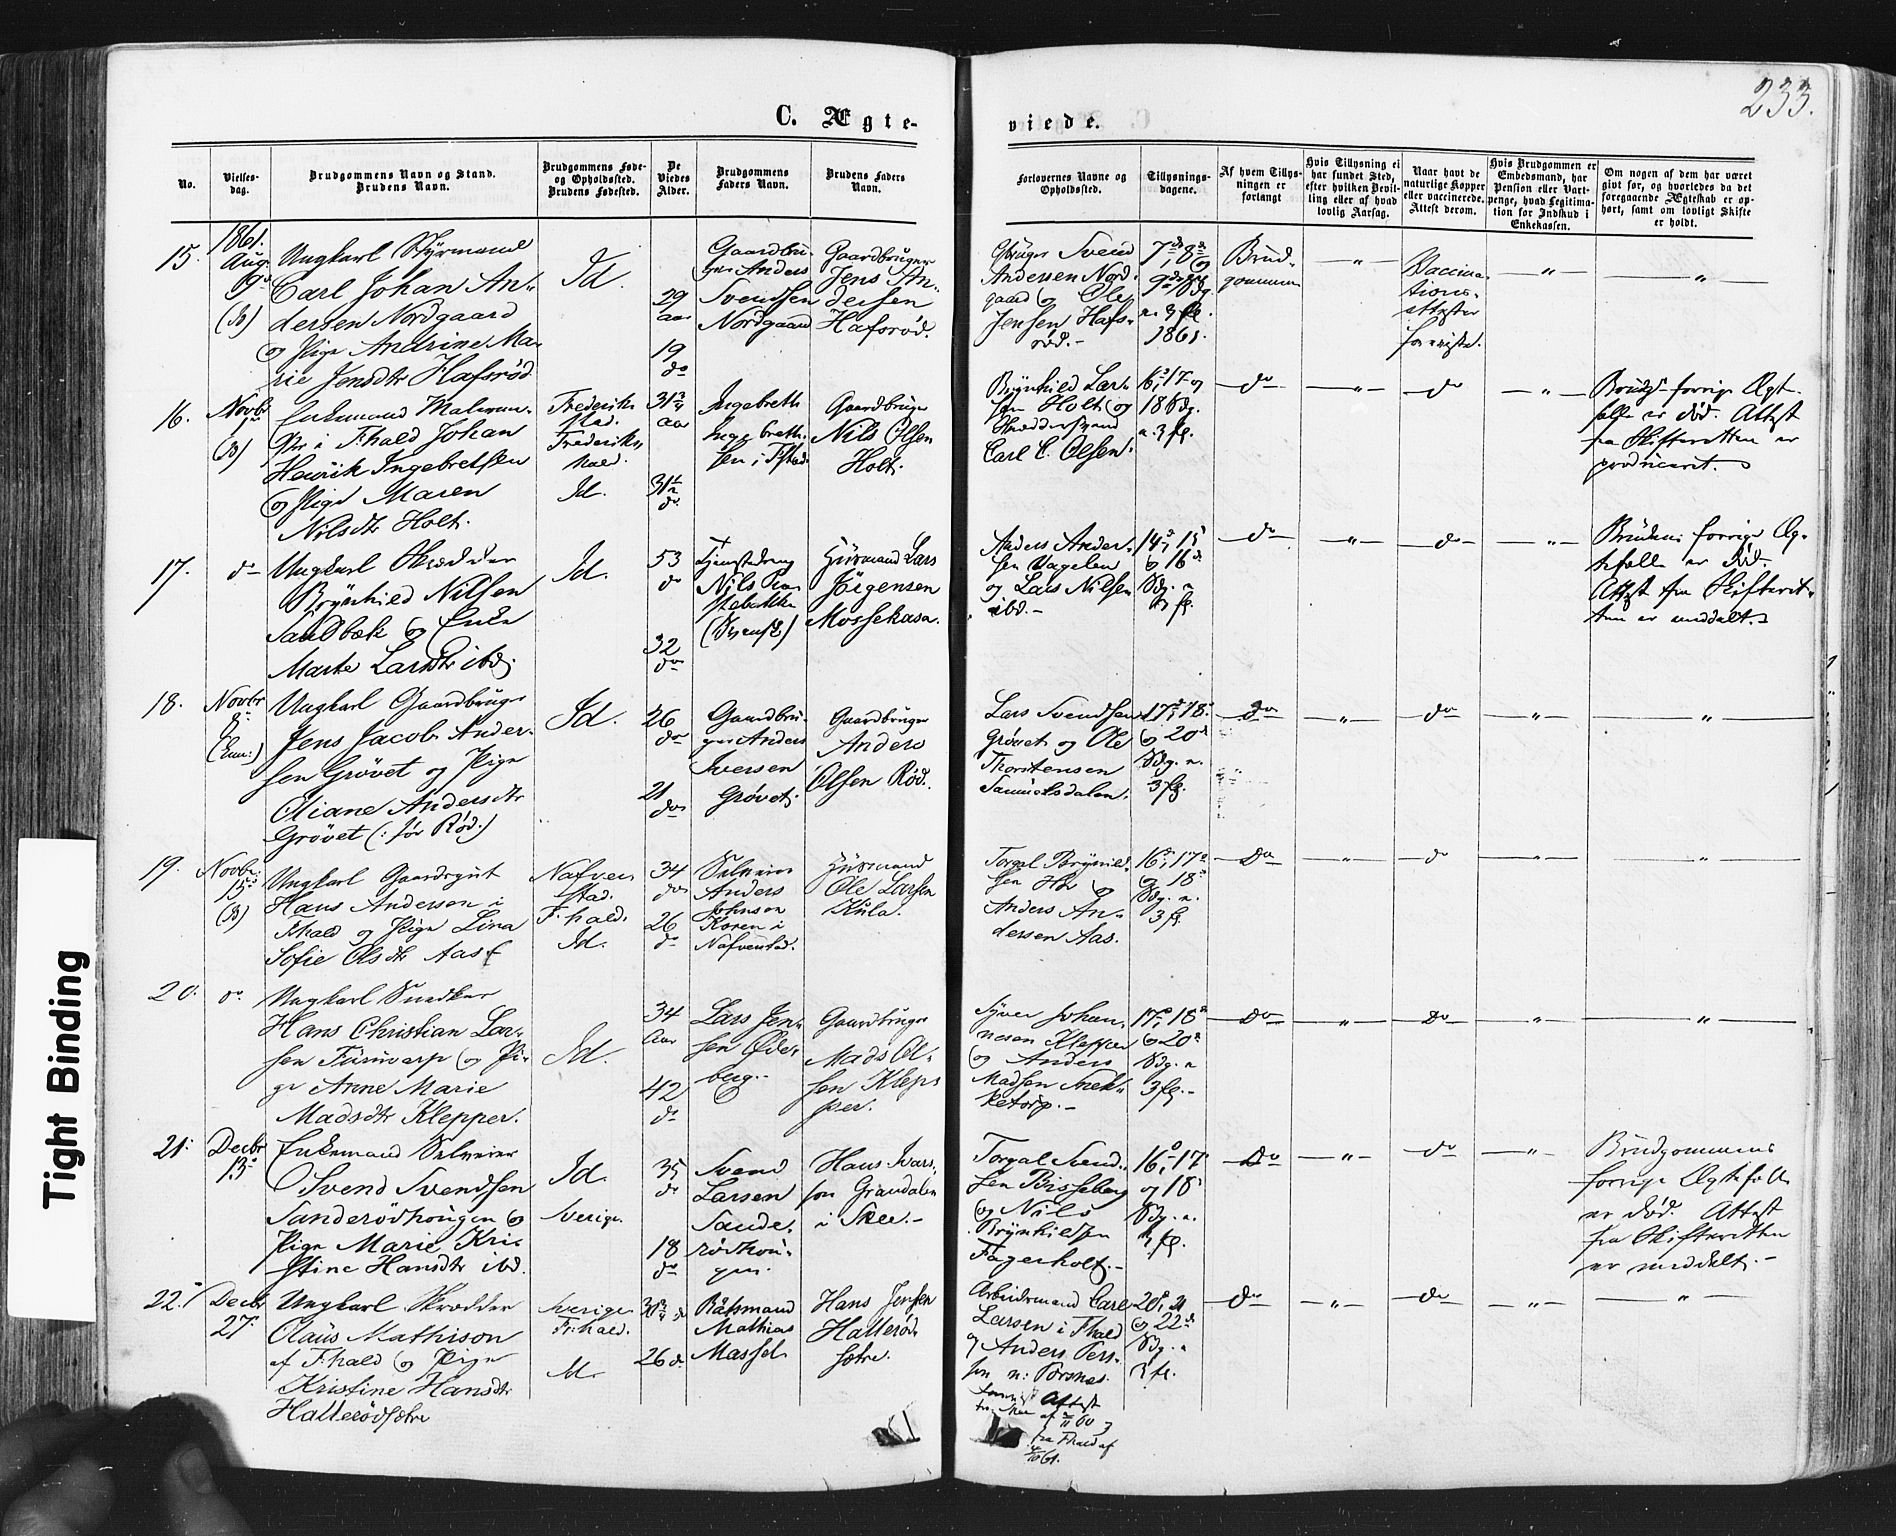 233.
C. Ægte-
viede.
No.
Vielses-
dag.
Brudgommens Navn og Stand.
Brudens Navn.
Brudgommens Føde-
og Opholdssted.
Brudens Fødested.
De
Viedes
Alder.
Brudgommens
Faders Navn.
Brudens Faders
Navn.
Forlovernes Navne og
Opholdssted.
Tillysnings-
dagene.
Af hvem Tillys-
ningen er
forlangt
Hvis Tillysning ei
har fundet Sted,
efter hvilken Bevil-
ling eller af hvad
lovlig Aarsag.
Naar havt de
naturlige Kopper
eller vaccinerede.
Attest derom.
Hvis Brudgommen er
Embedsmand, har
Pension eller Vart-
penge, hvad Legitima-
tion for Indskud i
Enkekassen.
Om nogen af dem har været
givt før, og hvorledes da det
foregaaende Ægteskab er op-
hørt, samt om lovligt Skifte
er holdt.
15.
1861.
Aug.
9
(B)
Ungkarl Styrmand
Carl Johan An-
dersen Nordgaard
og Pige Andrine Ma-
rie Jensdtr Hafsrød
Id.
29
aar
19
do
Gaardbru-
ger Anders
Svendsen
Nordgaard
Gaardbruger
Jens An-
dersen
Hafsrød.
Gbruger Svend
Andersen Nord-
gaard og Ole
Jensen Hafs-
rød.-
7, 8 og
3 p.
1861.
Brud-
gommen
-"-
Vaccina-
tions-
attester
foreviste.
-"-
-"-
16.
Novbr
(B)
Enkemand Malerme-
ster i F:hald Johan
Henrik Ingebretsen
og Pige Maren
Nilsdtr Holt.
Frederik-
stad.
Frederiks-
hald.
Id.
31 3/4
aar
31 1/2
do
Ingebreth
Ingebreth-
sen i F:stad.
Gaardbruger
Nils Olsen
Holt.
Brynhild Lar-
sen Holt og
Skræddersvend
Carl C. Olsen.
16, 17 og
18 Sdg.
n. 3 p.
do
-"-
do
-"-
Brudg. forrige Ægte-
fælle er død. Attest
fra Skifteretten er
produceret.
17.
do
Ungkarl Skrædder
Brynhild Nilsen
Sandbæk og Enke
Marte Larsdtr ibd.
Id.
53
do
32
do
Tjenestedreng
Nils
(Svensk)
Huusmand Lars
Jørgensen
Mossekasa.
Anders Ander-
sen Vagelen
og Lars Nilsen
ibd.-
14, 15
og 16
Sdg. n
p.
do
-"-
do
-"-
Brudens forrige Æg-
tefælle er død.
Attest fra Skifteret-
ten er meddelt.
18.
Novbr
8
Ungkarl Gaardbruger
Jens Jacob Ander-
sen Grøvet og Pige
Eliane Andersdtr
Grøvet (: før Rød.)
Id.
26
do
21
do
Gaardbru-
ger Anders
Iversen
Grøvet.
Gaardbruger
Anders
Olsen Rød.
Lars Svendsen
Grøvet og Ole
Thorstensen
Samuelsdalen.
17, 18
og 20
Sdg. n.
3 p.
do
-"-
do
-"-
"
19.
Novbr.
15
(B)
Ungkarl Gaardsgut
Hans Andersen i
F:hald og Pige Lina
Sofie Olsdtr Aas
Nafver-
stad.
F:hald.
Id.
34
do
26
do
Selveier
Anders
Johnsen
Koren i
Nafverstad.
Huusmand
Ole Larsen
Kula.
Torgal Brynild-
sen Ho og
Anders An-
dersen Aas.
16, 17
og 18
Sdg. n.
3 p.
do
"
do
"
"
20.
do
Ungkarl Snedker
Hans Christian Lar-
sen Furuvarp og Pi-
ge Anne Marie
Madsdtr Klepper.
Id.
34
Aar
42
do
Lars Jen-
sen Øde-
berg.-
Gaardbruger
Mads Ol-
sen Klep-
per.
Syver Johan-
nesen Klepper
og Anders
Madsen Snek-
ketorp.-
17, 18
og 20
Sdg. n
3 p.-
do
-"-
do
"
"
21.
Decbr
13
Enkemand Selveier
Svend Svendsen
Sanderødhougen og
Pige Marie Kri-
stine Hansdtr ibd.
Id.
Sverige.
35
do
18
do
Svend
Larsen
Sande-
rødhou-
gen.
Hans Ivars-
søn Grandalen
i Skee.-
Torgal Svend-
sen Bisseberg
og Nils
Brynhildsen
Fagerholt.-
16, 17
og 18
Sdg. n.
p.
do
-"-
do
-"-
Brudgommens
forrige Ægtefælle
er død. Attest
fra Skifteretten
er meddelt.-
22.
Decbr
27
Ungkarl Skrædder
Olaus Mathison
af F:hald og Pige
Kristine Hansdtr
Hallerødsætre
Sverige
F:hald.
Id.
26 do
Baatsmand
Mathias
Massel
Hans Jensen
Hallerød-
sætre.
Arbeidsmand Carl
Larsen i F:hald
og Anders Pers-
sen n: Torsnes.
20, 21
og 22
Sdg. n
3 p.
do
-"-
do
-"-
"
Attest
fra F:hald af
Tight Binding